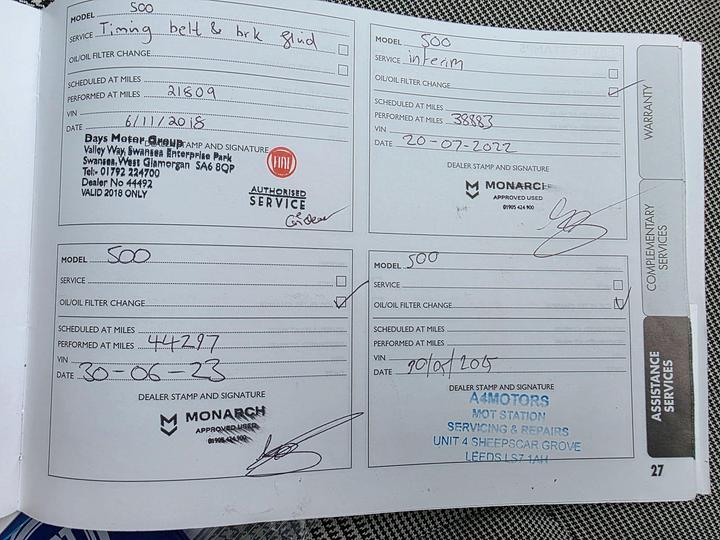 MODEL 500
SERVICE Timing belt & brk fluid
OIL/OIL FILTER CHANGE
SCHEDULED AT MILES
PERFORMED AT MILES 21809
VIN
DATE 6/11/2018
DEALER STAMP AND SIGNATURE
Days Motor Group
Valley Way, Swansea Enterprise Park
Swansea, West Glamorgan SA6 8QP
Tel:- 01792 224700
Dealer No 44492
VALID 2018 ONLY
FIAT
AUTHORISED
SERVICE
MODEL 500
SERVICE interim
OIL/OIL FILTER CHANGE
SCHEDULED AT MILES
PERFORMED AT MILES 38883
VIN
DATE 20-07-2022
DEALER STAMP AND SIGNATURE
MONARCH
APPROVED USED
01905 424 900
MODEL 500
SERVICE
OIL/OIL FILTER CHANGE
SCHEDULED AT MILES
PERFORMED AT MILES 44297
VIN
DATE 30-06-23
DEALER STAMP AND SIGNATURE
MONARCH
APPROVED USED
MODEL 500
SERVICE
OIL/OIL FILTER CHANGE
SCHEDULED AT MILES
PERFORMED AT MILES
VIN
DATE
DEALER STAMP AND SIGNATURE
A4MOTORS
MOT STATION
SERVICING & REPAIRS
UNIT 4 SHEEPSCAR GROVE
LEEDS LS7 1AH
WARRANTY
COMPLEMENTARY
SERVICES
ASSISTANCE
SERVICES
27